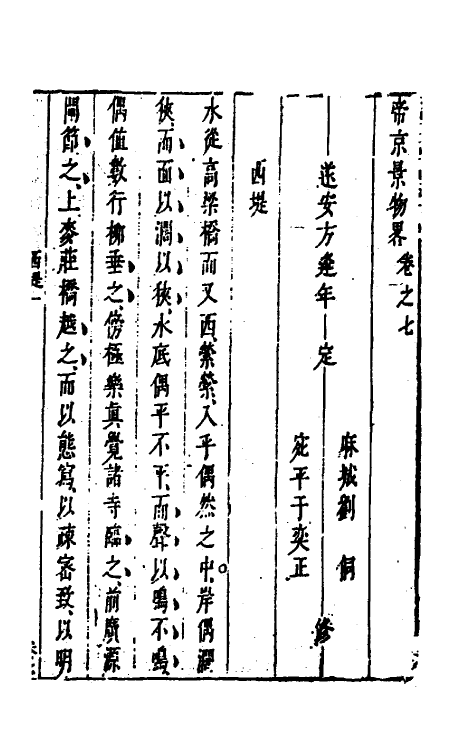 帝京景物畧卷之七
遂安方逢年定
麻城劉侗
宛平于奕正
修
西堤
水從高梁橋而又西縈縈入乎偶然之中岸偶濶
狹而面以濶以狹水底偶平不平而聲以鳴不鳴
偶值數行柳垂之傍極樂真覺諸寺臨之前廣源
閘節之上麥莊橋越之而以態寫以疎密致以明
西堤一